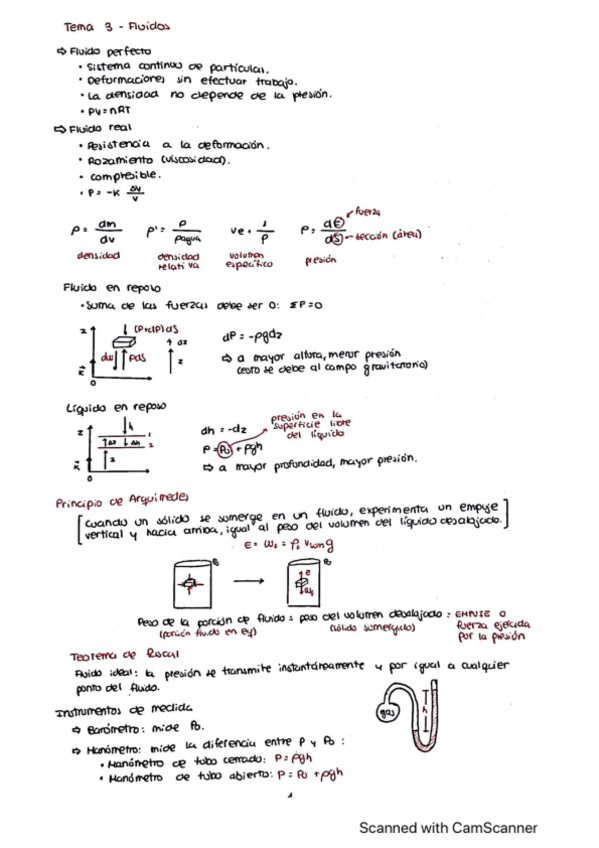 Tema 3 - Fluidos
⇒ Fluido perfecto
• Sistema continuo de partículas.
• Deformaciones sin efectuar trabajo.
• La densidad no depende de la presión.
• PV = nRT
⇒ Fluido real
• Resistencia a la deformación.
• Rozamiento (viscosidad).
• Compresible.
• P = -K ΔV/V
ρ = dm/dv ρ' = ρ/ρagua ve = 1/ρ P = dF/dS
fuerza
sección (área)
densidad densidad relativa volumen específico presión
Fluido en reposo
• Suma de las fuerzas debe ser 0: ΣF=0
z (P+dP)dS
dw PdS dz z
0
dP = -ρgdz
⇒ a mayor altura, menor presión
(esto se debe al campo gravitatorio)
Líquido en reposo
z h
1
Δz Δh 2
z
0
dh = -dz
presión en la superficie libre del líquido
P = P0 + ρgh
⇒ a mayor profundidad, mayor presión.
Principio de Arquímedes
[Cuando un sólido se sumerge en un fluido, experimenta un empuje
vertical y hacia arriba, igual al peso del volumen del líquido desalojado.]
Peso de la porción de fluido = peso del volumen desalojado = EMPUJE o
(porción fluido en eq) (sólido sumergido) fuerza ejercida
por la presión
Teorema de Pascal
Fluido ideal: la presión se transmite instantáneamente y por igual a cualquier
punto del fluido.
Instrumentos de medida
⇒ Barómetro: mide P0.
⇒ Manómetro: mide la diferencia entre P y P0:
• Manómetro de tubo cerrado: P = ρgh
• Manómetro de tubo abierto: P = P0 + ρgh
gas
h
1
Scanned with CamScanner